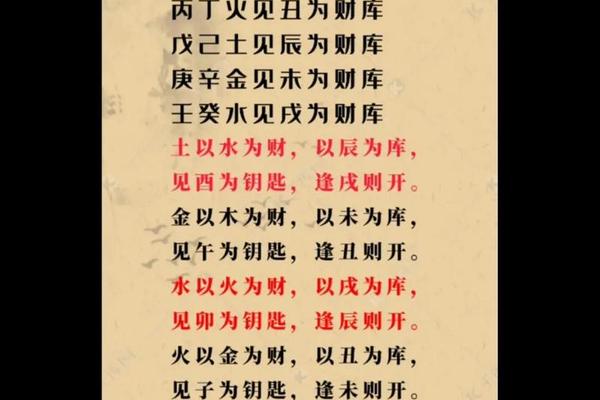 丙丁火见丑为财库
戊己土见辰为财库
庚辛金见未为财库
壬癸水见戌为财库
土以水为财，以辰为库，
见酉为钥匙，逢戌则开。
金以木为财，以未为库，
见午为钥匙，逢丑则开。
水以火为财，以戌为库，
见卯为钥匙，逢辰则开。
火以金为财，以丑为库，
见子为钥匙，逢未则开。